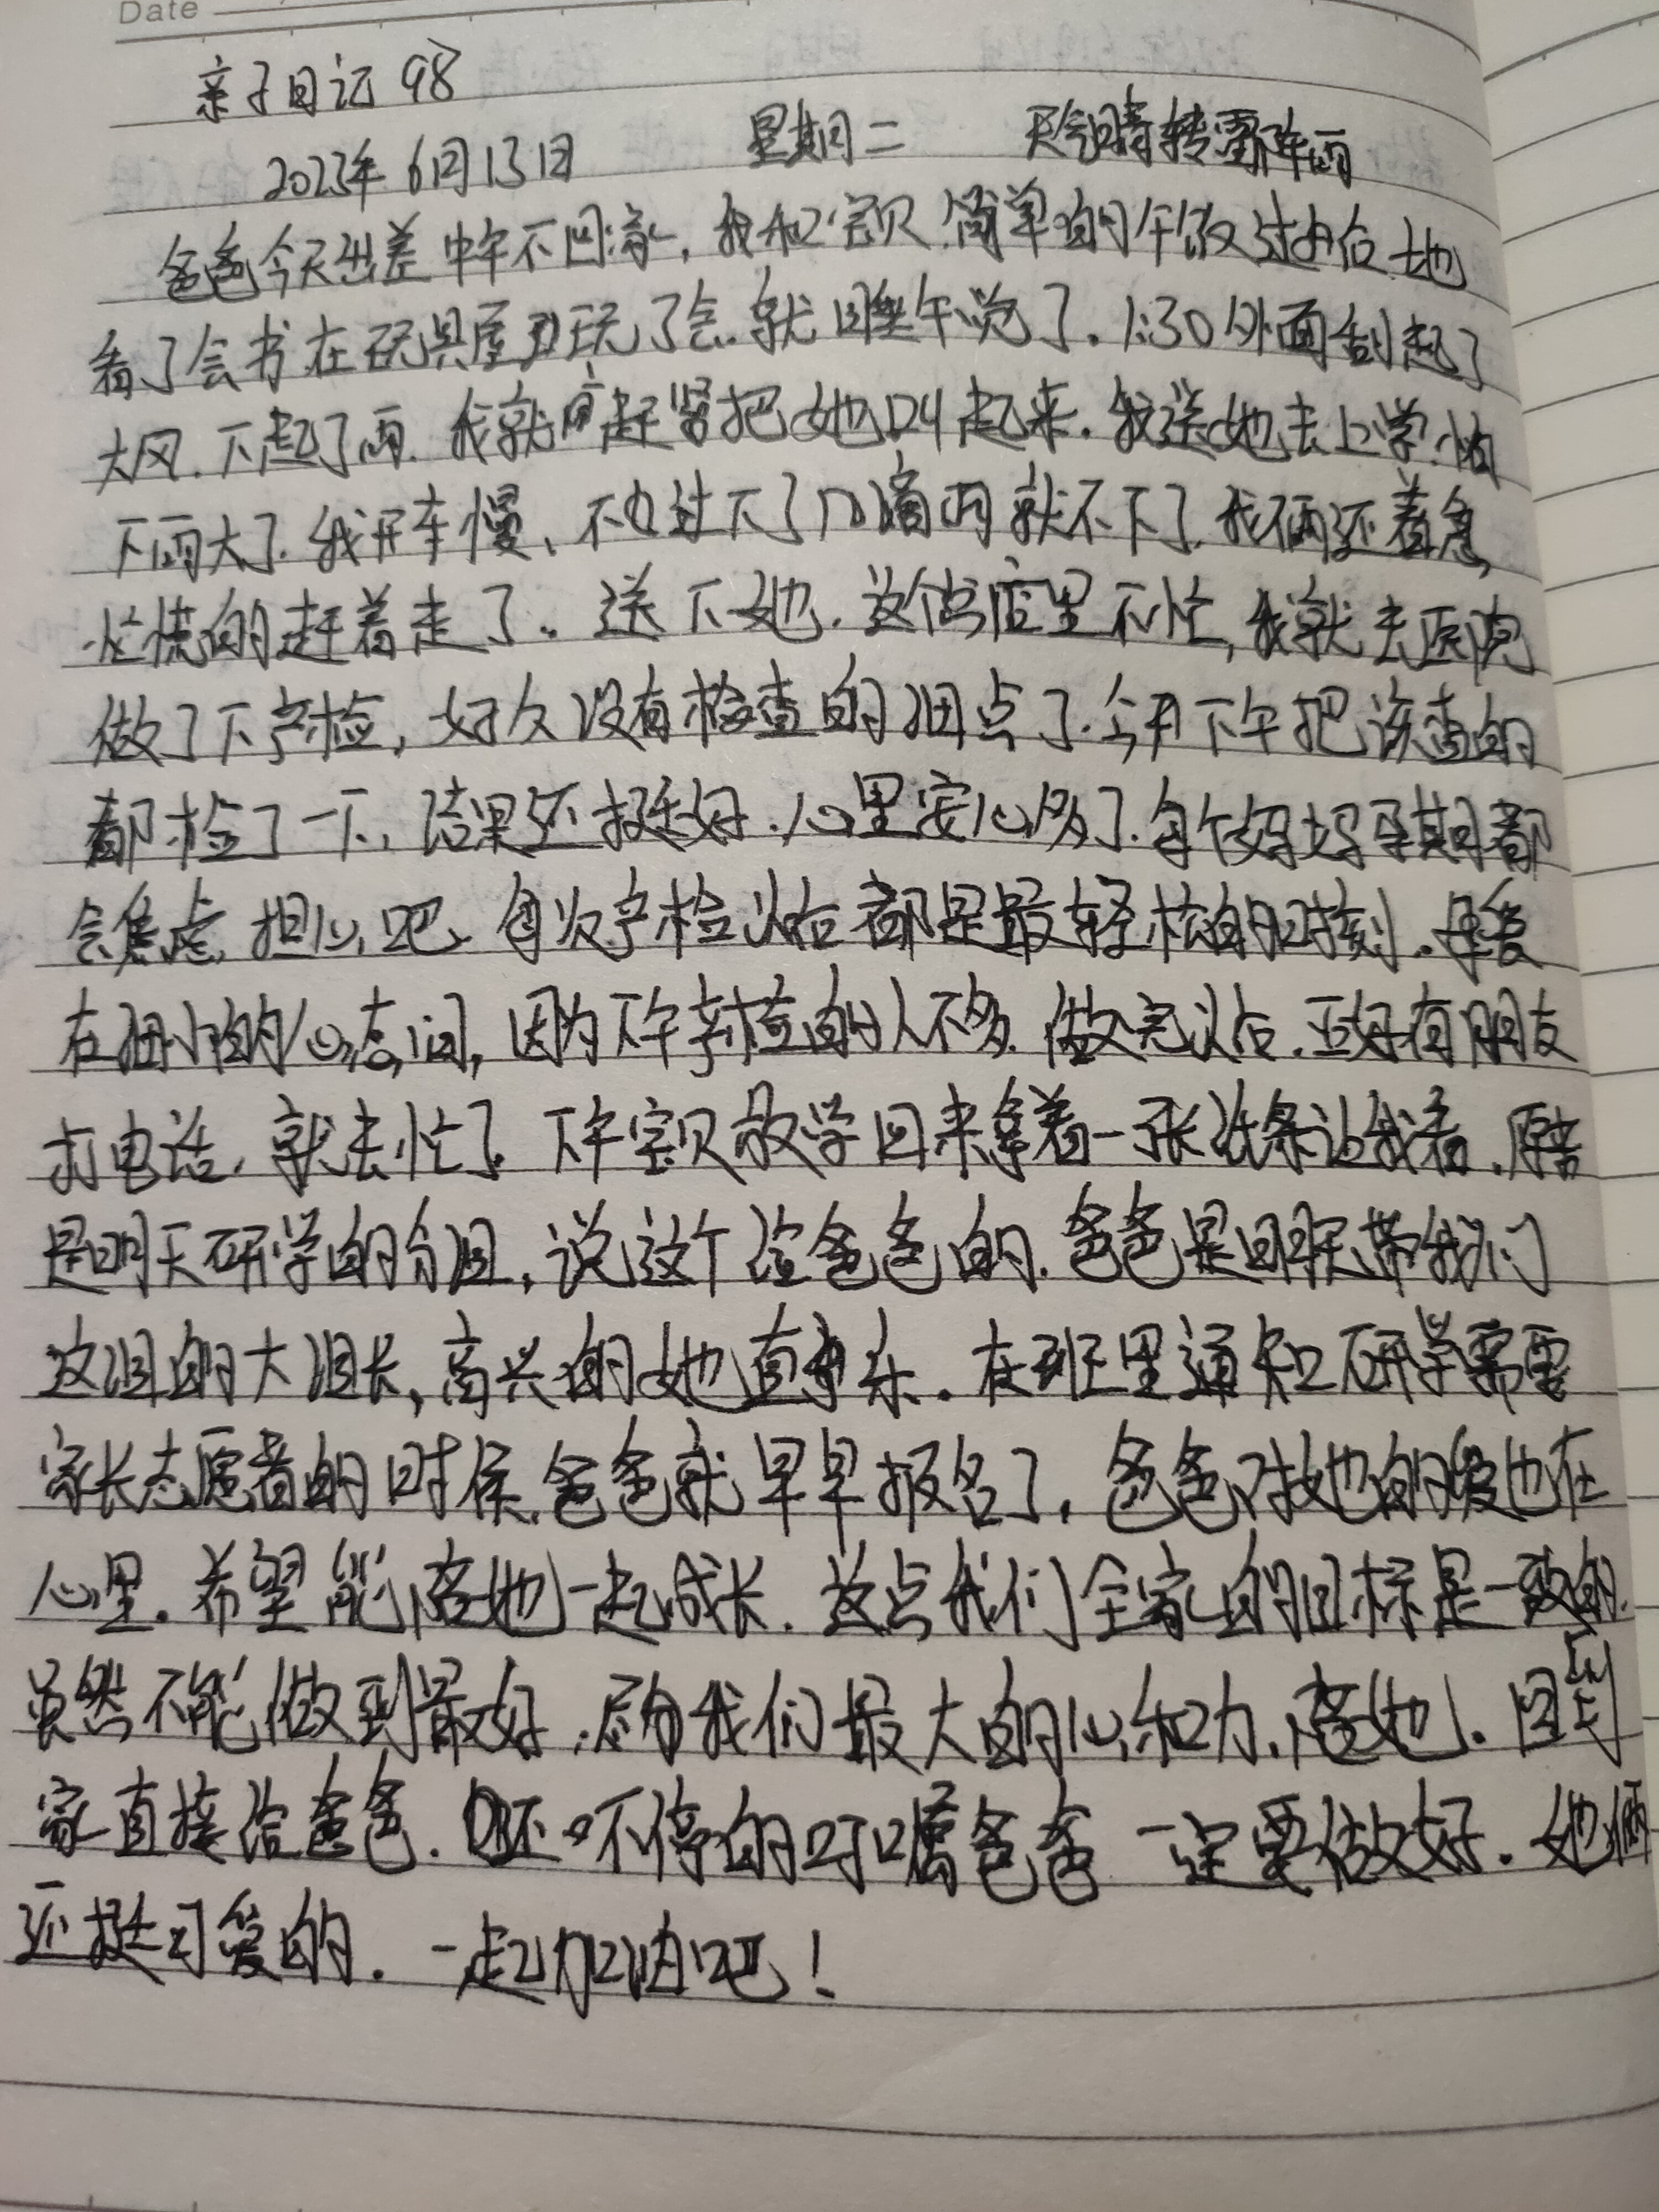 Date
亲子日记 98
2023年6月13日 星期二 天气晴转雷阵雨
爸爸今天出差中午不回家,我和宝贝.简单的午饭过后.她
看了会书.在玩具屋玩了会.就睡午觉了.1:30外面刮起了
大风.下起了雨.我就赶紧把她叫起来.我送她去上学.怕
下雨大了.我开车慢、不过下了几滴雨就不下了.我俩还着急
忙慌的赶着走了。送下她.这个点店里不忙,我就去医院
做了下产检,好久没有检查的细点了.今天下午把该查的
都检了一下,结果还挺好.心里安心多了.每个妈妈孕期都
会焦虑,担心吧、每次产检以后都是最轻松的时刻.母爱
在细小的心态间,因为下午产检的人不多.做完以后.正好有朋友
打电话,就去忙了.下午宝贝放学回来拿着一张纸条让我看.原来
是明天研学的分组,说这个给爸爸的.爸爸是明天带我们
这组的大组长,高兴的她直乐.在班里通知研学需要
家长志愿者的时候.爸爸就早早报名了,爸爸对她的爱也在
心里.希望能陪她一起成长.这点我们全家的目标是一致的.
虽然不能做到最好.尽我们最大的心和力,陪她.回到
家直接给爸爸.还不停的叮嘱爸爸一定要做好.她俩
还挺可爱的.一起加油吧!